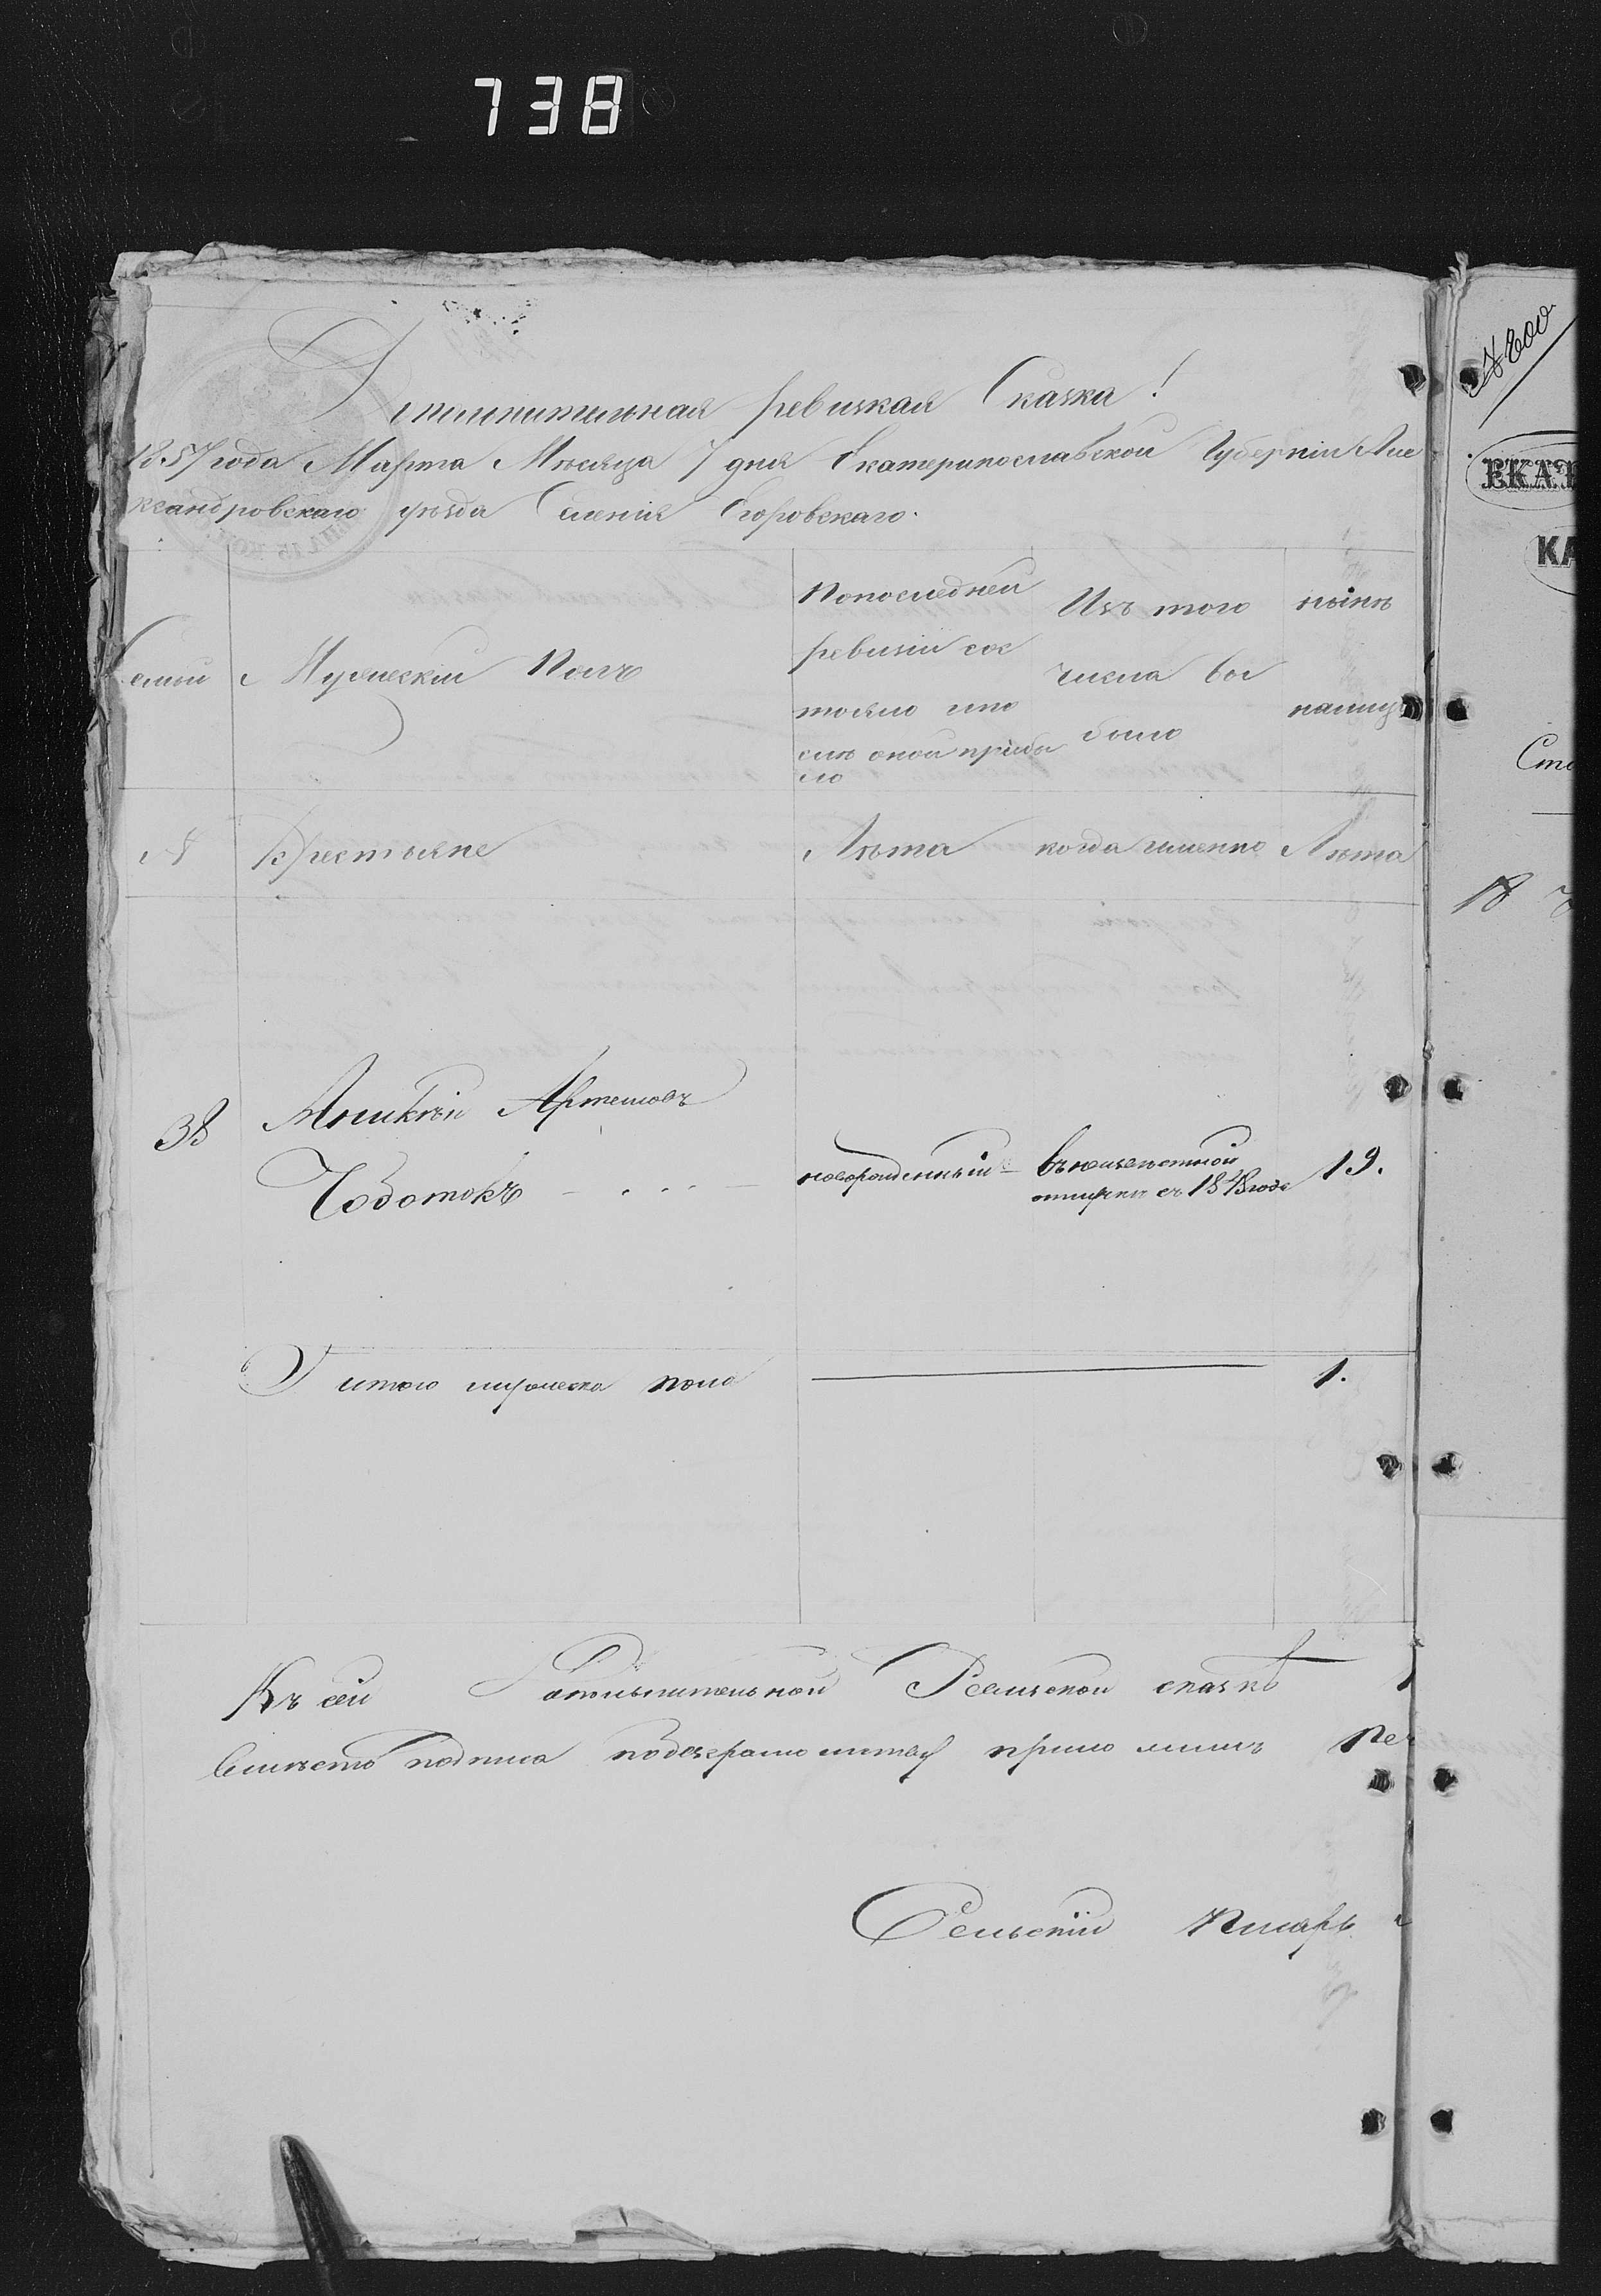 738
Дополнительная ревизкая Сказка!
1857 года Марта Мѣсяца 7 дня Екатеринославской Губерніи Але
ксандровскаго уѣзда Селенія Егоровскаго.
Семьи
Мужескій Полъ
По последней
ревизіи сос
тояло и по
слѣ оной прибы
ло
Изъ того
числа выс
было
нынѣ
налицо
№
Крестьяне
Лѣта
когда именно
Лѣта
38
Аникѣй Артемовъ
Чоботокъ
новорожденный
въ неизвѣстной
отлучкѣ съ 1848 года
19.
И итого мужеска пола
1.
Къ сей Дополнительной Ревизской сказкѣ
вмѣсто подписа
Сельскій Писарь
ЕКАТ
КА
Ста
18